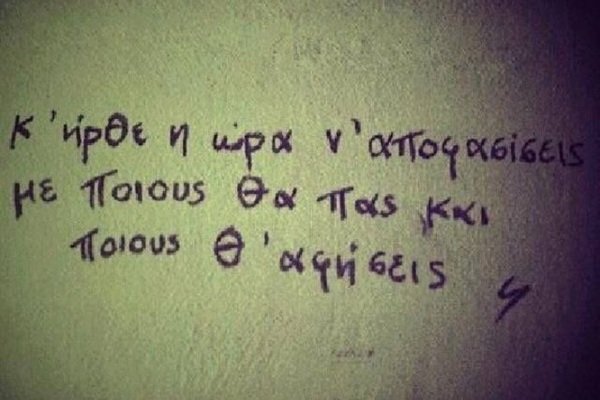 κ 'ήρθε η ώρα ν'αποφασίσεις
με ποιους θα πας και
ποιους θ'αφήσεις